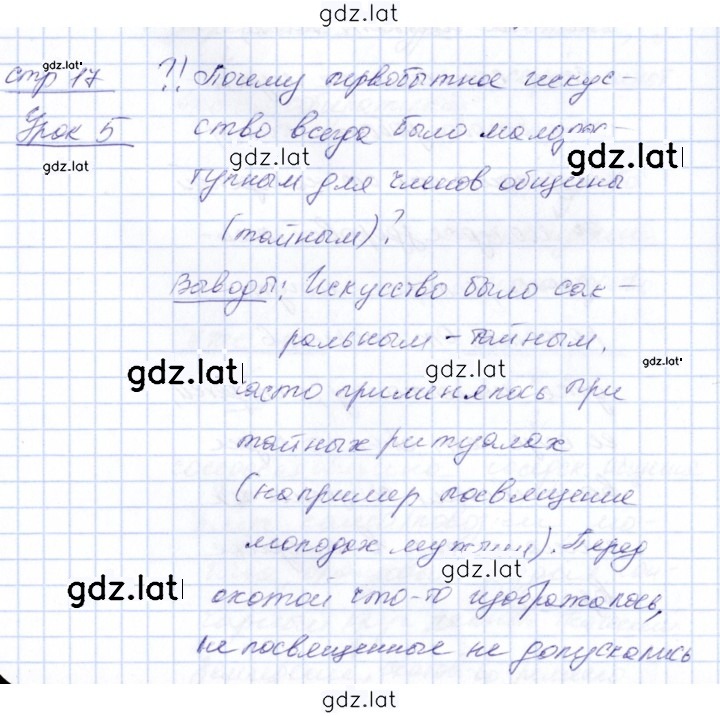 gdz.lat
стр 17 ?! Почему первобытное искус-
gdz.lat
Урок 5 ство всегда было малодос-
gdz.lat gdz.lat
gdz.lat тупным для членов общины
(тайным)?
Выводы: Искусство было сак-
ральным - тайным,
gdz.lat gdz.lat gdz.lat
часто применялось при
тайных ритуалах
(например посвящение
молодох мужчин). Перед
gdz.lat gdz.lat
охотой что-то изображалось,
не посвященные не допускались
gdz.lat